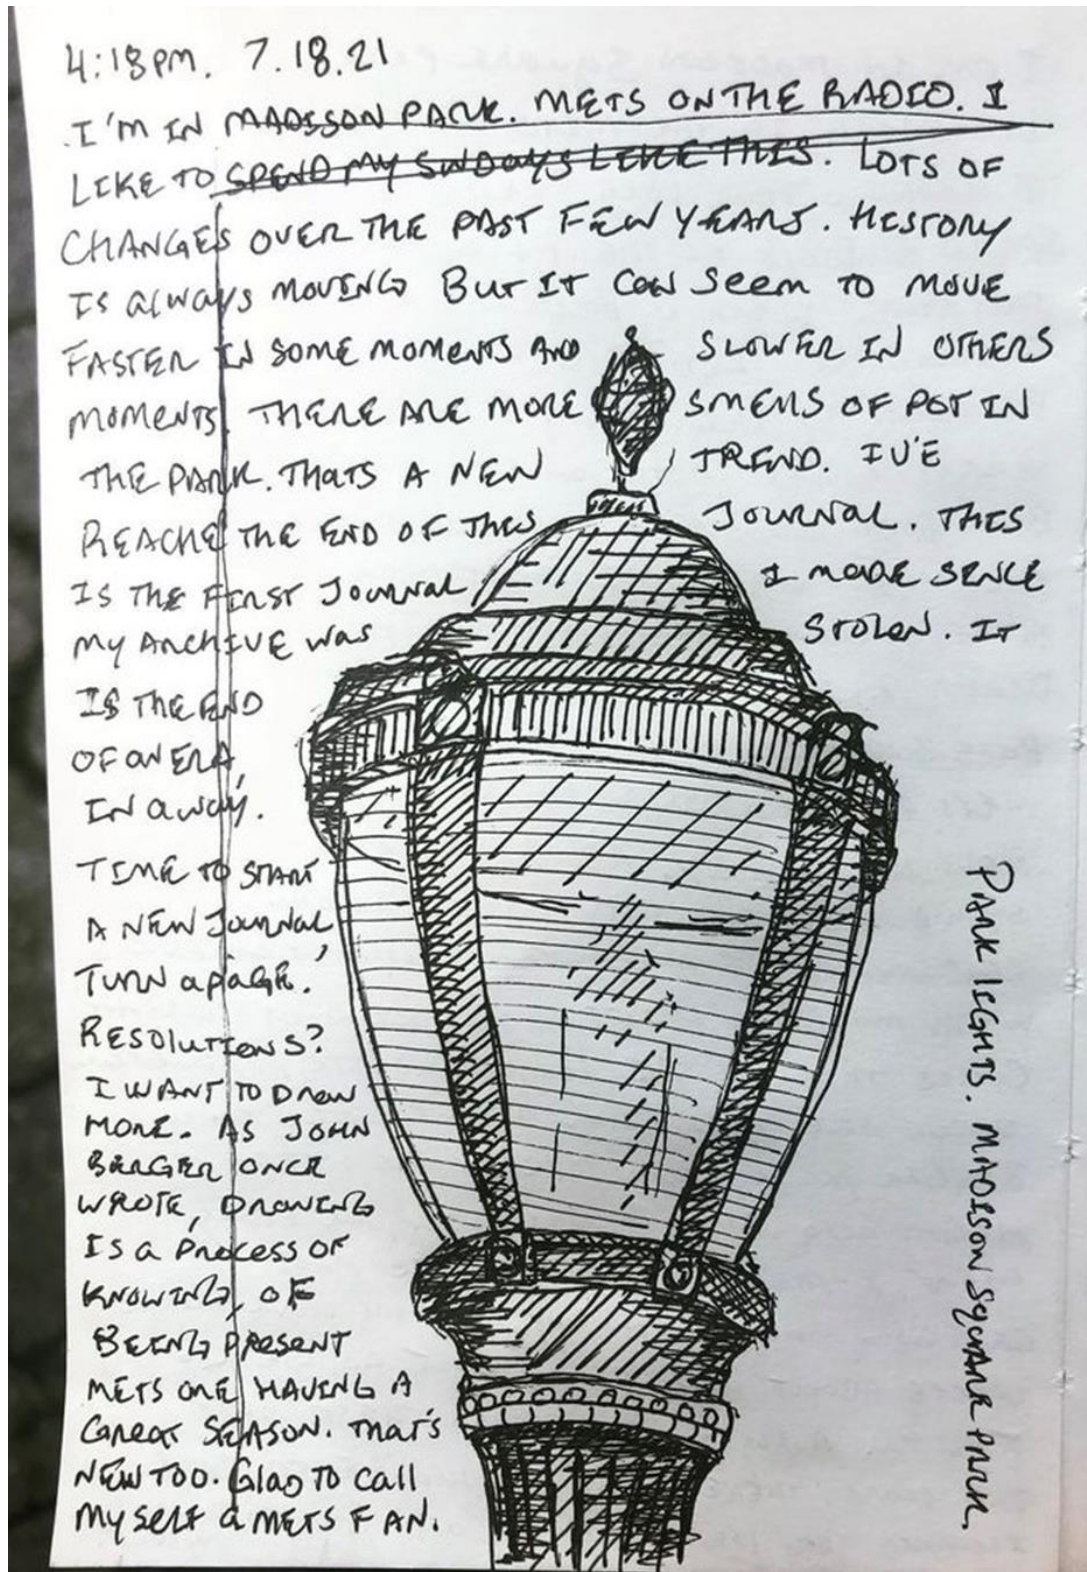 4:18PM. 7.18.21
I'M IN MADISON PARK. METS ON THE RADIO. I
LIKE TO SPEND MY SUNDAYS LIKE THIS. LOTS OF
CHANGES OVER THE PAST FEW YEARS. HISTORY
IS always MOVING BUT IT CAN Seem TO MOVE
FASTER IN SOME MOMENTS AND SLOWER IN OTHERS
MOMENTS. THERE ARE MORE SMELLS OF POT IN
THE PARK. THATS A NEW TREND. IV'E
REACHE THE END OF THIS JOURNAL. THIS
IS THE FIRST JOURNAL I MADE SINCE
MY ARCHIVE WAS STOLEN. IT
IS THE END
OF AN ERA,
IN a way.
TIME TO START
A NEW JOURNAL,
TURN a PAGE.
RESOLUTIONS?
I WANT TO DRAW
MORE. AS JOHN
BERGER ONCE
WROTE, DRAWING
IS a PROCESS OF
KNOWING, OF
BEING PRESENT
METS ARE HAVING A
GREAT SEASON. THAT'S
NEW TOO. Glad TO call
MySELF a METS FAN.
PARK LIGHTS. MADISON SQUARE PARK.